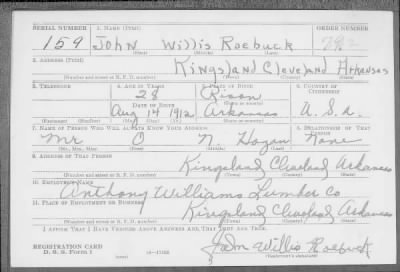 SERIAL NUMBER 1. NAME (Print) ORDER NUMBER
159 John Willis Roebuck
(First) (Middle) (Last)
2. ADDRESS (Print)
Kingsland Cleveland Arkansas
(Number and street or R. F. D. number) (Town) (County) (State)
3. TELEPHONE 4. AGE IN YEARS 5. PLACE OF BIRTH 6. COUNTRY OF CITIZENSHIP
28 Rison
DATE OF BIRTH (Town or county)
Aug 14 1912 Arkansas U. S. a.
(Exchange) (Number) (Mo.) (Day) (Yr.) (State or country)
7. NAME OF PERSON WHO WILL ALWAYS KNOW YOUR ADDRESS 8. RELATIONSHIP OF THAT PERSON
Mr O N. Hogan None
(Mr., Mrs., Miss) (First) (Middle) (Last)
9. ADDRESS OF THAT PERSON
Kingsland Cleveland Arkansas
(Number and street or R. F. D. number) (Town) (County) (State)
10. EMPLOYER'S NAME
Anthony Williams Lumber Co
11. PLACE OF EMPLOYMENT OR BUSINESS
Kingsland Cleveland Arkansas
(Number and street or R. F. D. number) (Town) (County) (State)
I AFFIRM THAT I HAVE VERIFIED ABOVE ANSWERS AND THAT THEY ARE TRUE.
REGISTRATION CARD
D. S. S. Form 1
John Willis Roebuck
(Registrant's signature)